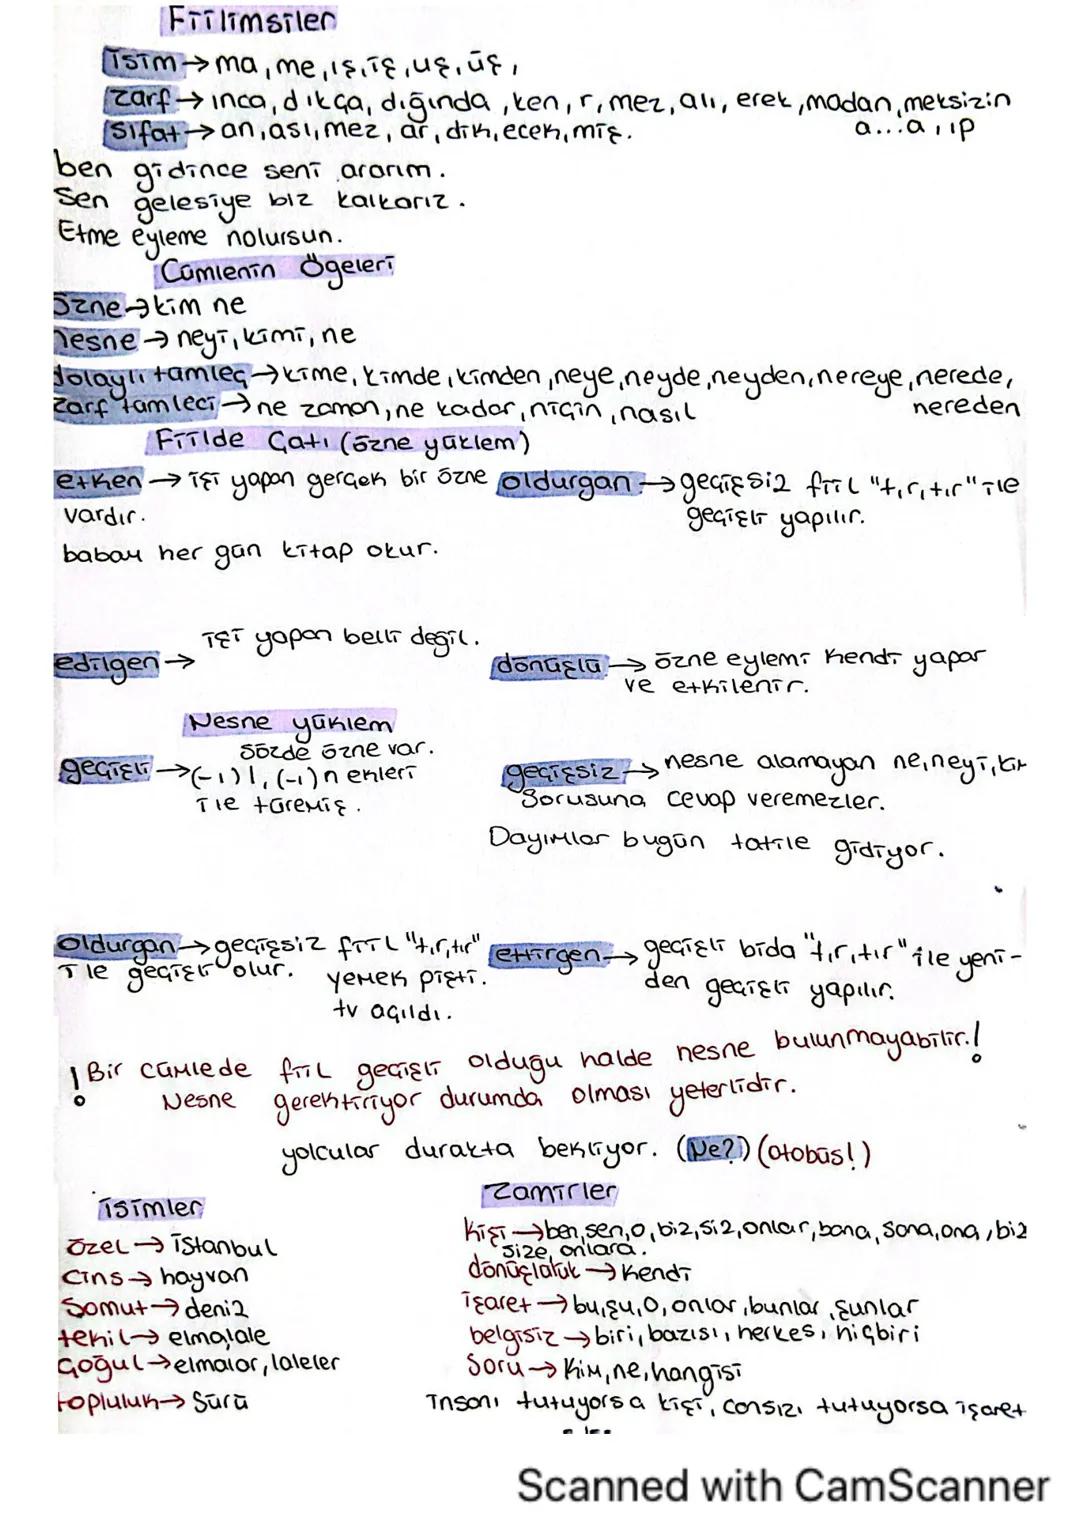 Fiilimsiler
isim→ma,me,ış,iş,uş,üş,
zarf→ınca,dıkça,dığında,ken,r,mez,alı,erek,madan,meksizin
a...a,ıp
sıfat→an,ası,mez,ar,dik,ecek,miş.
ben gidince seni ararım.
Sen gelesiye biz kalkarız.
Etme eyleme nolursun.
Cümlenin Ögeleri
özne→kim ne
nesne→neyi,kimi,ne
dolaylı tümleç→kime,kimde,kimden,neye,neyde,neyden,nereye,nerede,
nereden
zarf tümleci→ne zaman,ne kadar,niçin,nasıl
Fiilde Çatı (özne yüklem)
etken→işi yapan gerçek bir özne
vardır.
babam her gün kitap okur.
oldurgan→geçişsiz fiil "t,r,tır" ile
geçişli yapılır.
edilgen→ işi yapan belli değil.
dönüşlü→özne eylemi kendi yapar
ve etkilenir.
Nesne yüklem
sözde özne var.
geçişli→(-ı)l,(-ı)n ekleri
ile türemiş.
geçişsiz→nesne alamayan ne,neyi,
sorusuna cevap veremezler.
Dayımlar bugün tatile gidiyor.
oldurgan→geçişsiz fiil "t,r,tır"
ile geçişli olur.
yemek pişti.
tv açıldı.
ettirgen→geçişli bida "t,r,tır" ile yeni-
den geçişli yapılır.
! Bir cümlede fiil geçişli olduğu halde nesne bulunmayabilir.!
Nesne gerektiriyor durumda olması yeterlidir.
yolcular durakta bekliyor. (Ne?) (otobüs!)
isimler
özel→istanbul
cins→hayvan
somut→deniz
tekil→elma,lale
çoğul→elmalar,laleler
topluluk→sürü
Zamirler
kişi→ben,sen,o,biz,siz,onlar,bana,sana,ona,biz
size,onlara.
dönüşlülük→kendi
işaret→bu,şu,o,onlar,bunlar,şunlar
belgisiz→biri,bazısı,herkes,hiçbiri
soru→kim,ne,hangisi
insanı tutuyorsa kişi, cansızı tutuyorsa işaret
Scanned with CamScanner